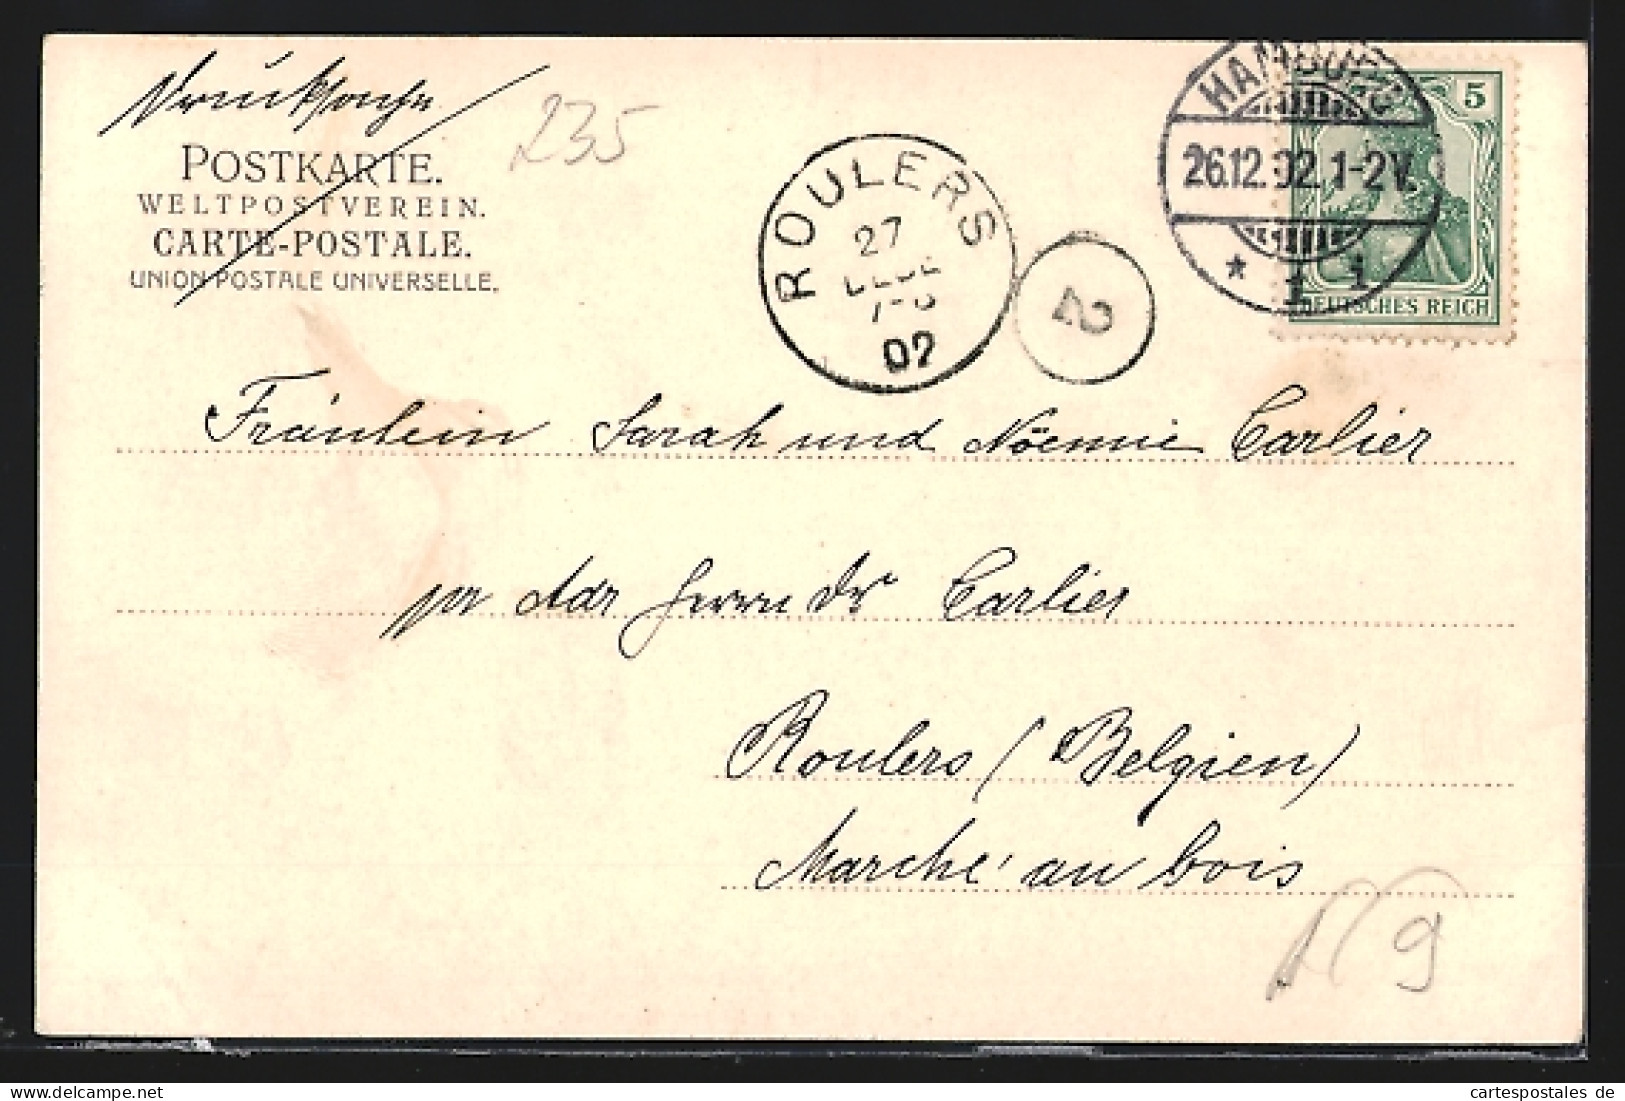 Drucksache
235
POSTKARTE.
WELTPOSTVEREIN.
CARTE-POSTALE.
UNION POSTALE UNIVERSELLE.
ROULERS
27
DECE
7-8
02
2
HAMBURG
26.12.02.1-2V.
* 1 i
5
DEUTSCHES REICH
Fräulein Sarah und Nöemie Carlier
pr Adr Herrn Dr Carlier
Roulers (Belgien)
Marché au bois
9
cartespostales de